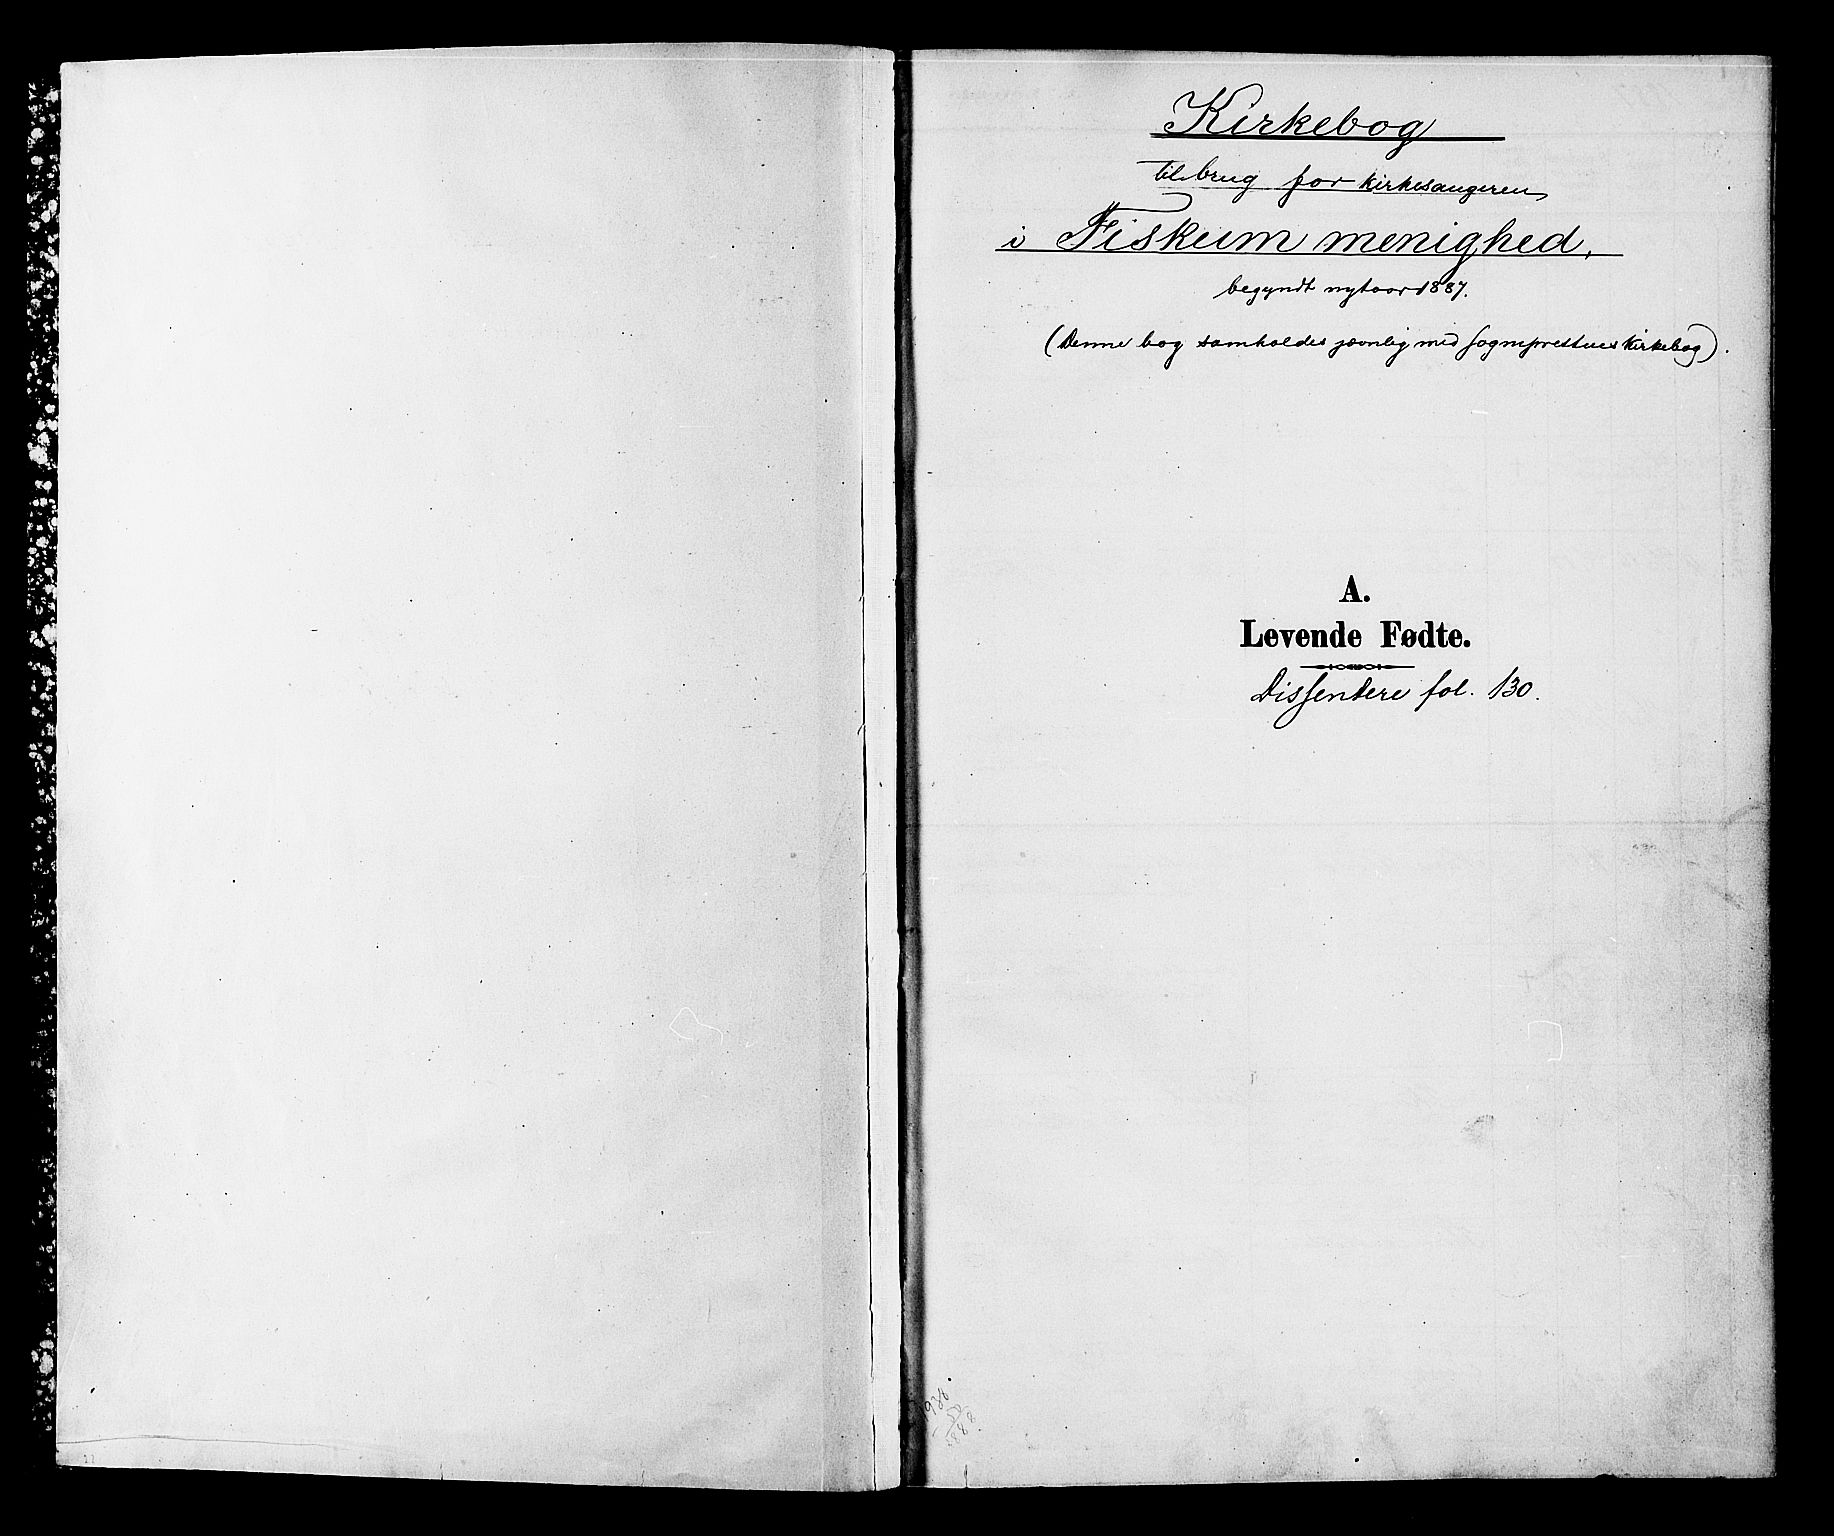 Kirkebog
til brug for kirkesangeren
i Fiskum menighed.
begyndt nytaar 1887.
(Denne bog samholdes jævnlig med sogneprestens Kirkebog).
A.
Levende Fødte.
Dissentere fol. 130.